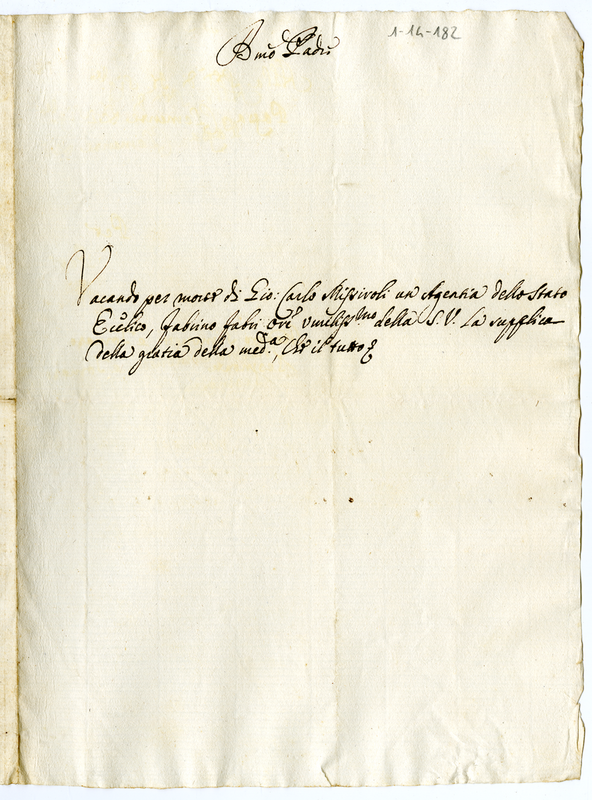 1-14-182
Bmo Padre
Vacando per morte di Gio: Carlo Missiroli un Agentia dello Stato
Ecc.lico, Fabrino Fabri Ore humiliss.mo della S. V. La supplica
della gratia della med.a, Che il tutto &